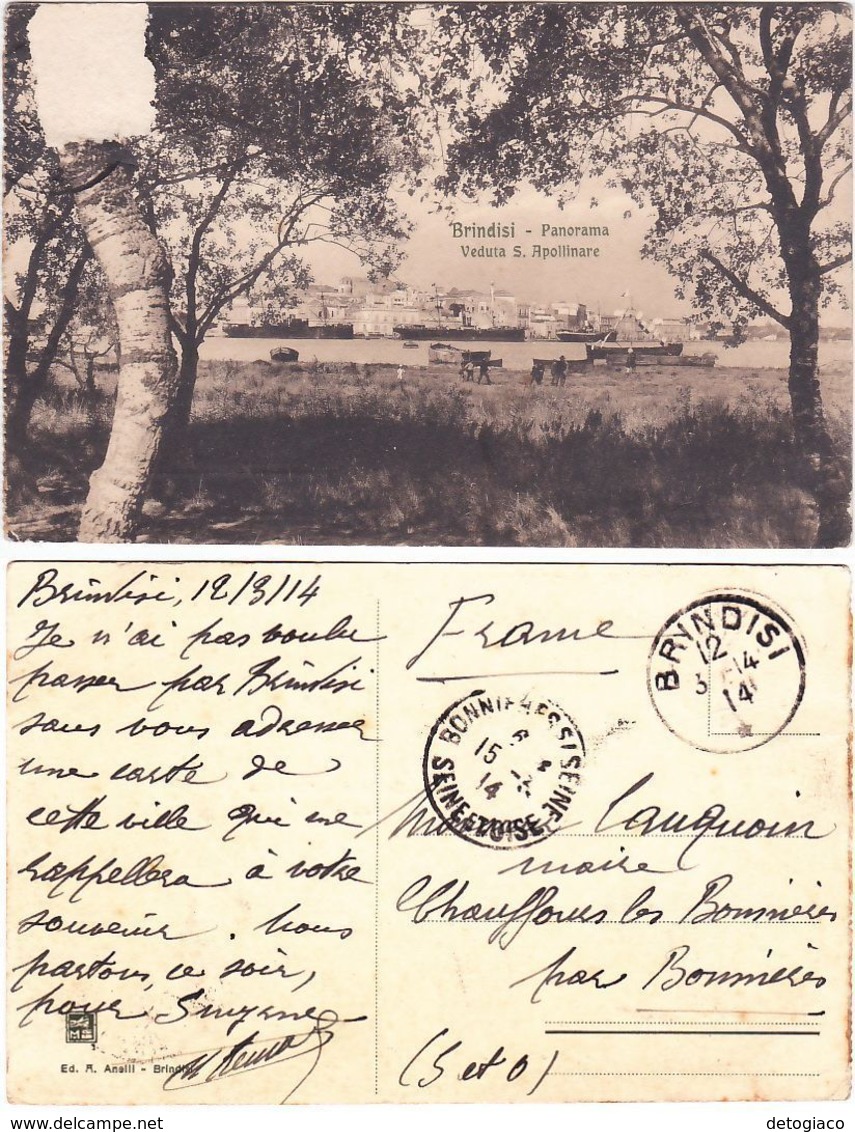 Brindisi - Panorama
Veduta S. Apollinare
Brindisi, 12/3/14
Je n'ai pas voulu
passer par Brindisi
sans vous adresser
une carte de
cette ville qui me
rappellera à votre
souvenir. Nous
partons, ce soir,
pour Smyrne
Ed. A. Anelli - Brindisi
France
BRINDISI
12
3 14
14
BONNIERES S/ SEINE
15
14
SEINE ET OISE
Cauquoin
maire
Chauffours les Bonnières
par Bonnières
(S et O)
detogiaco